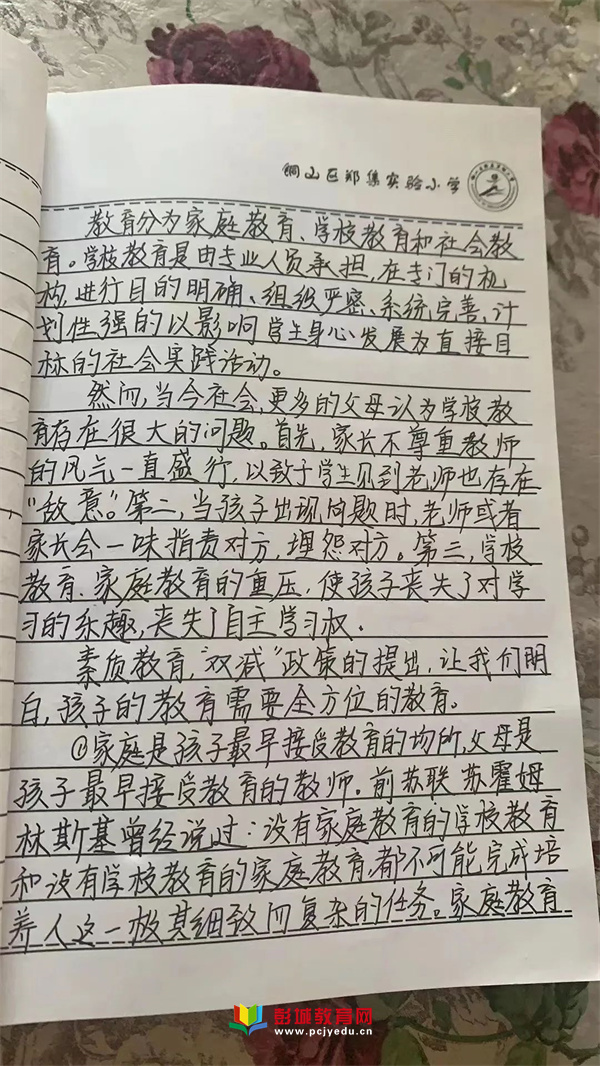 铜山区郑集实验小学
教育分为家庭教育、学校教育和社会教
育。学校教育是由专业人员承担,在专门的机
构,进行目的明确、组织严密、系统完善、计
划性强的以影响学生身心发展为直接目
标的社会实践活动。
然而,当今社会,更多的父母认为学校教
育存在很大的问题。首先,家长不尊重教师
的风气一直盛行,以致于学生见到老师也存在
“敌意”。第二,当孩子出现问题时,老师或者
家长会一味指责对方,埋怨对方。第三,学校
教育、家庭教育的重压,使孩子丧失了对学
习的乐趣,丧失了自主学习权.
素质教育,“双减”政策的提出,让我们明
白,孩子的教育需要全方位的教育。
①家庭是孩子最早接受教育的场所,父母是
孩子最早接受教育的教师。前苏联苏霍姆
林斯基曾经说过:没有家庭教育的学校教育
和没有学校教育的家庭教育,都不可能完成培
养人这一极其细致而复杂的任务。家庭教育
彭城教育网
www.pcjyedu.cn